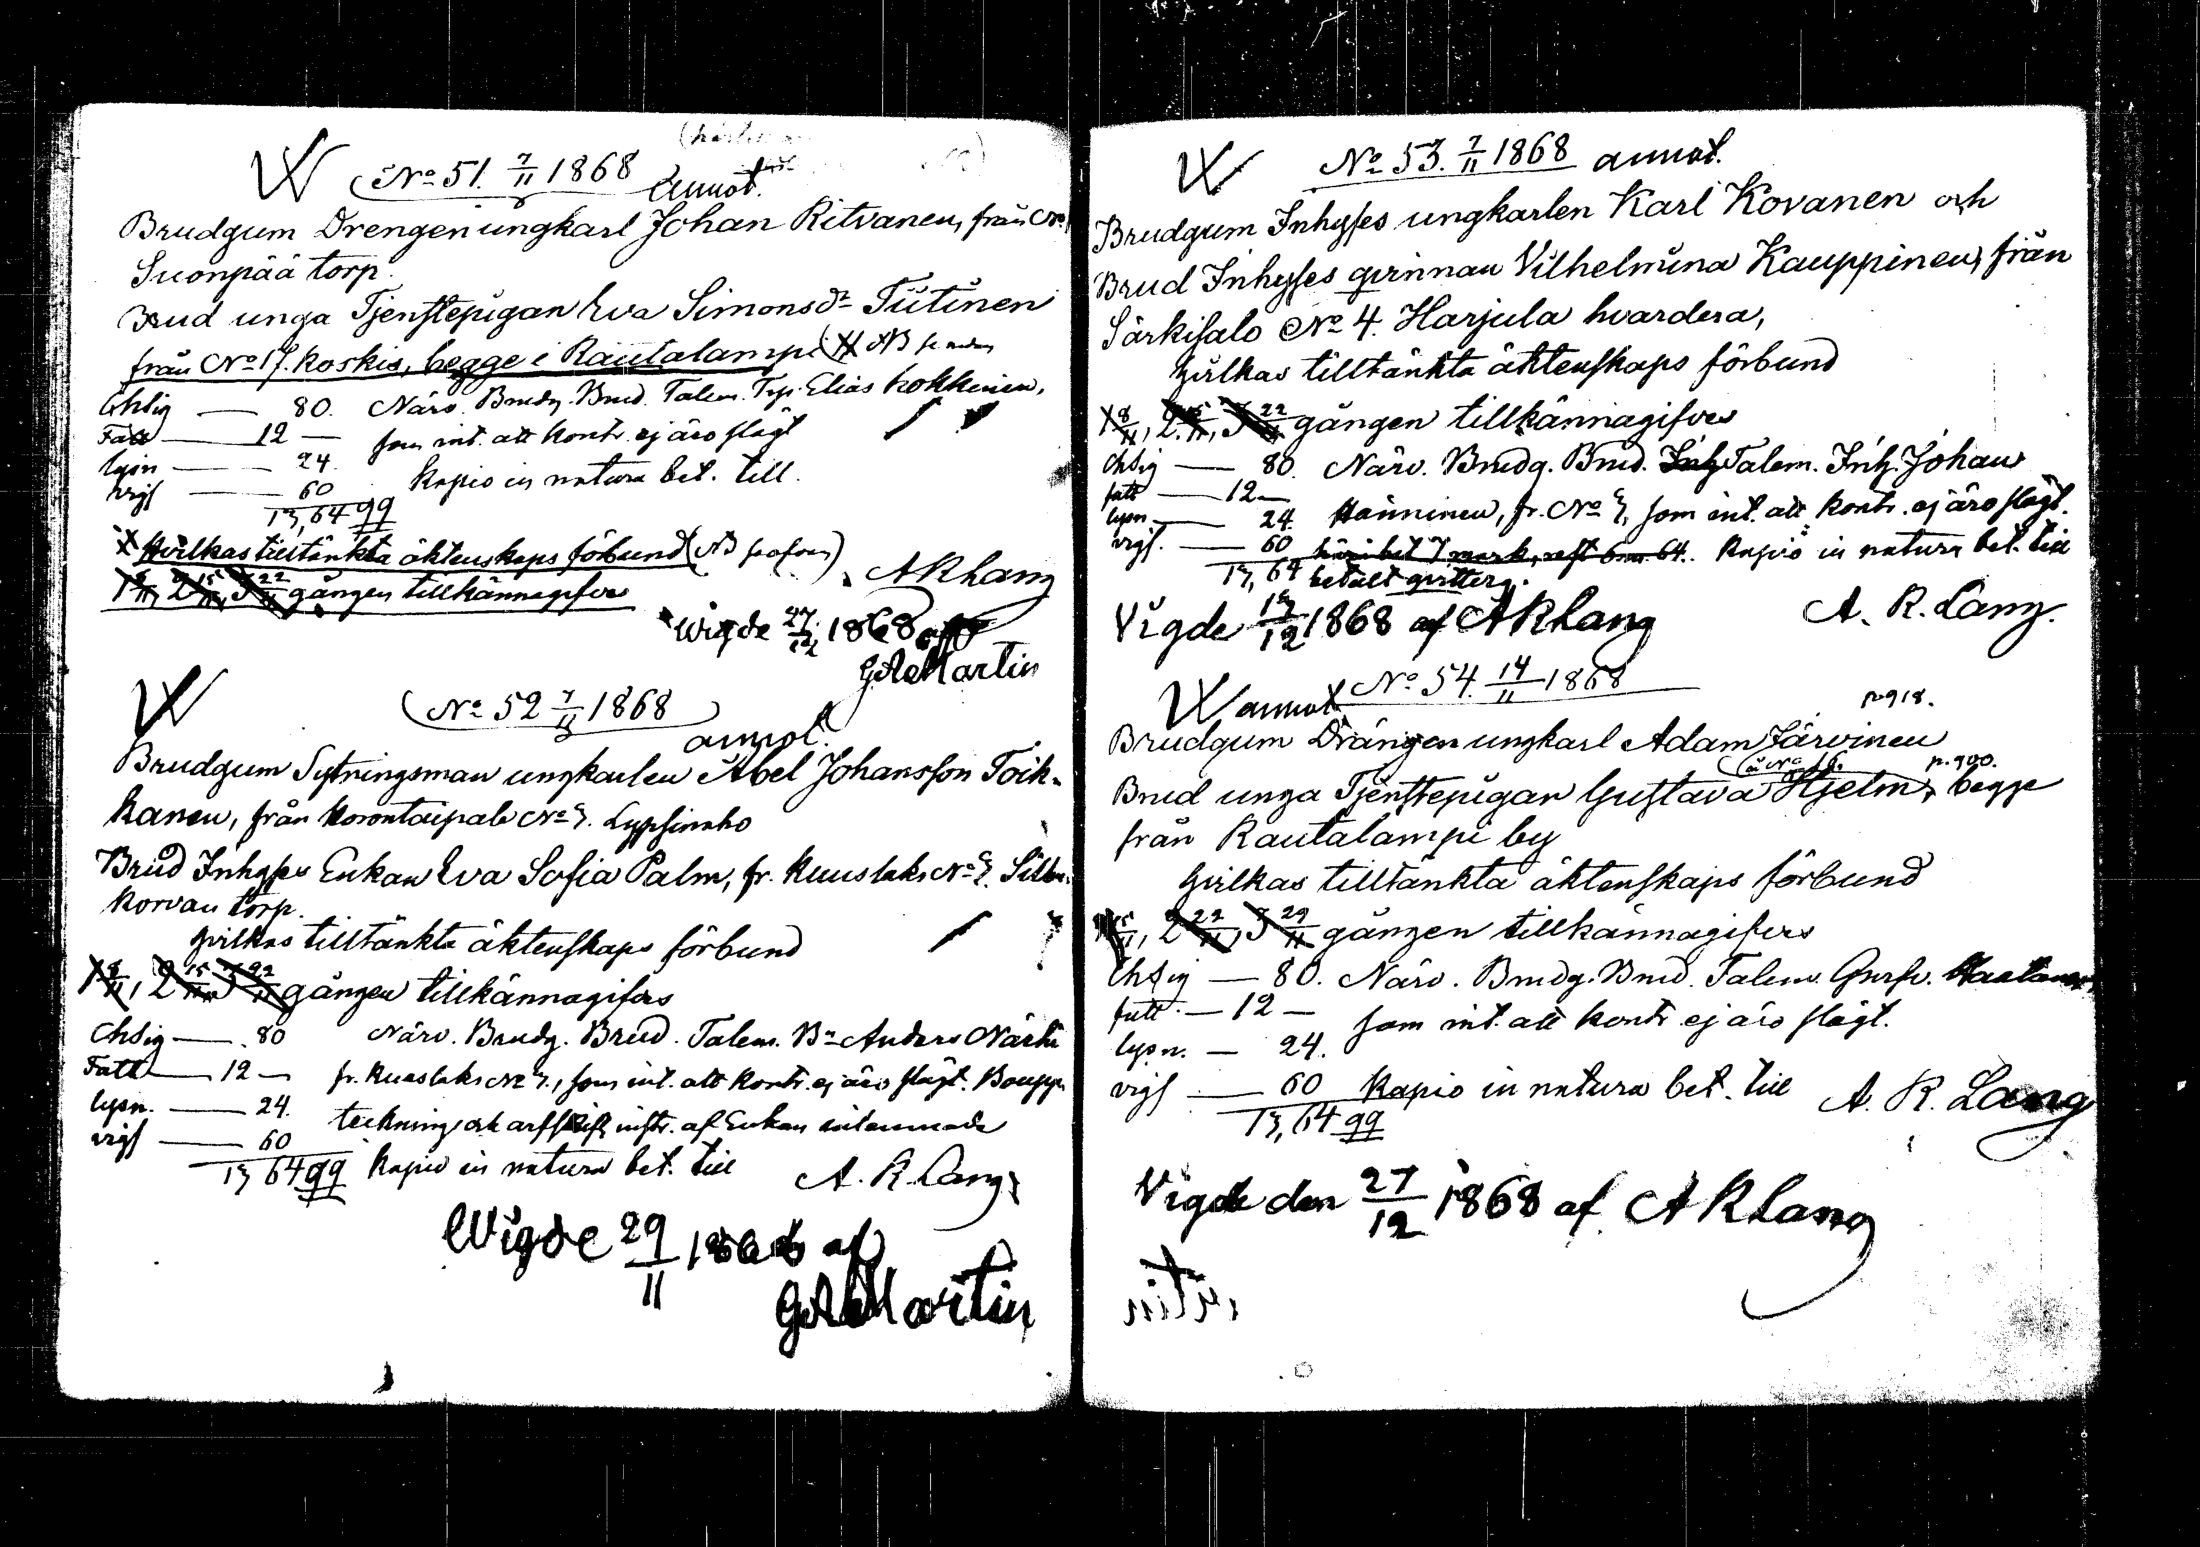 No 51. 7/11 1868
annot.
Brudgum Drengen ungkarl Johan Ritvanen, från No
Suonpää torp.
Brud unga Tjenstepigan Eva Simonsdr Tiitinen
från No 17. Koskis, begge i Rautalampi
Chsig — 80. Närv. Brudg. Brud. Talem. Elias Kokkinen,
Fatt — 12 — som int. att kontr. ej äro slägt
lysn — 24. Kapio in natura bet. till.
vigs — 60
13,64 99
Hvilkas tilltänkta äktenskaps förbund
1 8/11, 2 15/11, 3 22/11 gången tillkännagifves
A R Lang
Wigde 27/12 1868 af
G A Martin
No 52 7/11 1868
annot.
Brudgum Sytningsman ungkarlen Abel Johansson Toik-
kanen, från Korontaipale No 7. Lypsinaho
Brud Inhyses Enkan Eva Sofia Palm, fr. Kuuslaks No 7.
korvan torp.
hvilkas tilltänkta äktenskaps förbund
1 8/11, 2 15/11, 3 22/11 gången tillkännagifves
Chsig — 80 Närv. Brudg. Brud. Talem. Bn Anders Närhi
Fatt — 12 — fr. Kuuslaks No 7., som int. att kontr. ej äro slägt. Boupp
lysn. — 24. teckning och arfskifts instr. af Enkan inlemnade
vigs — 60
13 64 99 Kapio in natura bet. till
A. R. Lang
Wigde 29/11 1868 af
G A Martin
No 53. 7/11 1868 annot.
Brudgum Inhyses ungkarlen Karl Kovanen och
Brud Inhyses qvinnan Vilhelmina Kauppinen, från
Särkisalo No 4. Harjula hvardera,
hvilkas tilltänkta äktenskaps förbund
1 8/11, 2 15/11, 3 22/11 gången tillkännagifves
Chsig — 80. Närv. Brudg. Brud. Talem. Inh. Johan
fatt — 12 — Hänninen, fr. No 7, som int. att kontr. ej äro slägt.
lysn — 24.
vigs. — 60 Kapio in natura bet. till
13,64 betalt qvitterg.
Vigde 13/12 1868 af A R Lang
A. R. Lang.
annot. No 54. 14/11 1868
p. 918.
Brudgum Drängen ungkarl Adam Järvinen
p. 900.
Brud unga Tjenstepigan Gustava Hjelm, begge
från Rautalampi by
hvilkas tilltänkta äktenskaps förbund
1 15/11, 2 22/11, 3 29/11 gången tillkännagifves
Chsig — 80. Närv. Brudg. Brud. Talem.
fatt. — 12 — som int. att kontr. ej äro slägt.
lysn. — 24.
vigs — 60 Kapio in natura bet. till
13,64 99
A. R. Lang
Vigde den 27/12 1868 af A R Lang